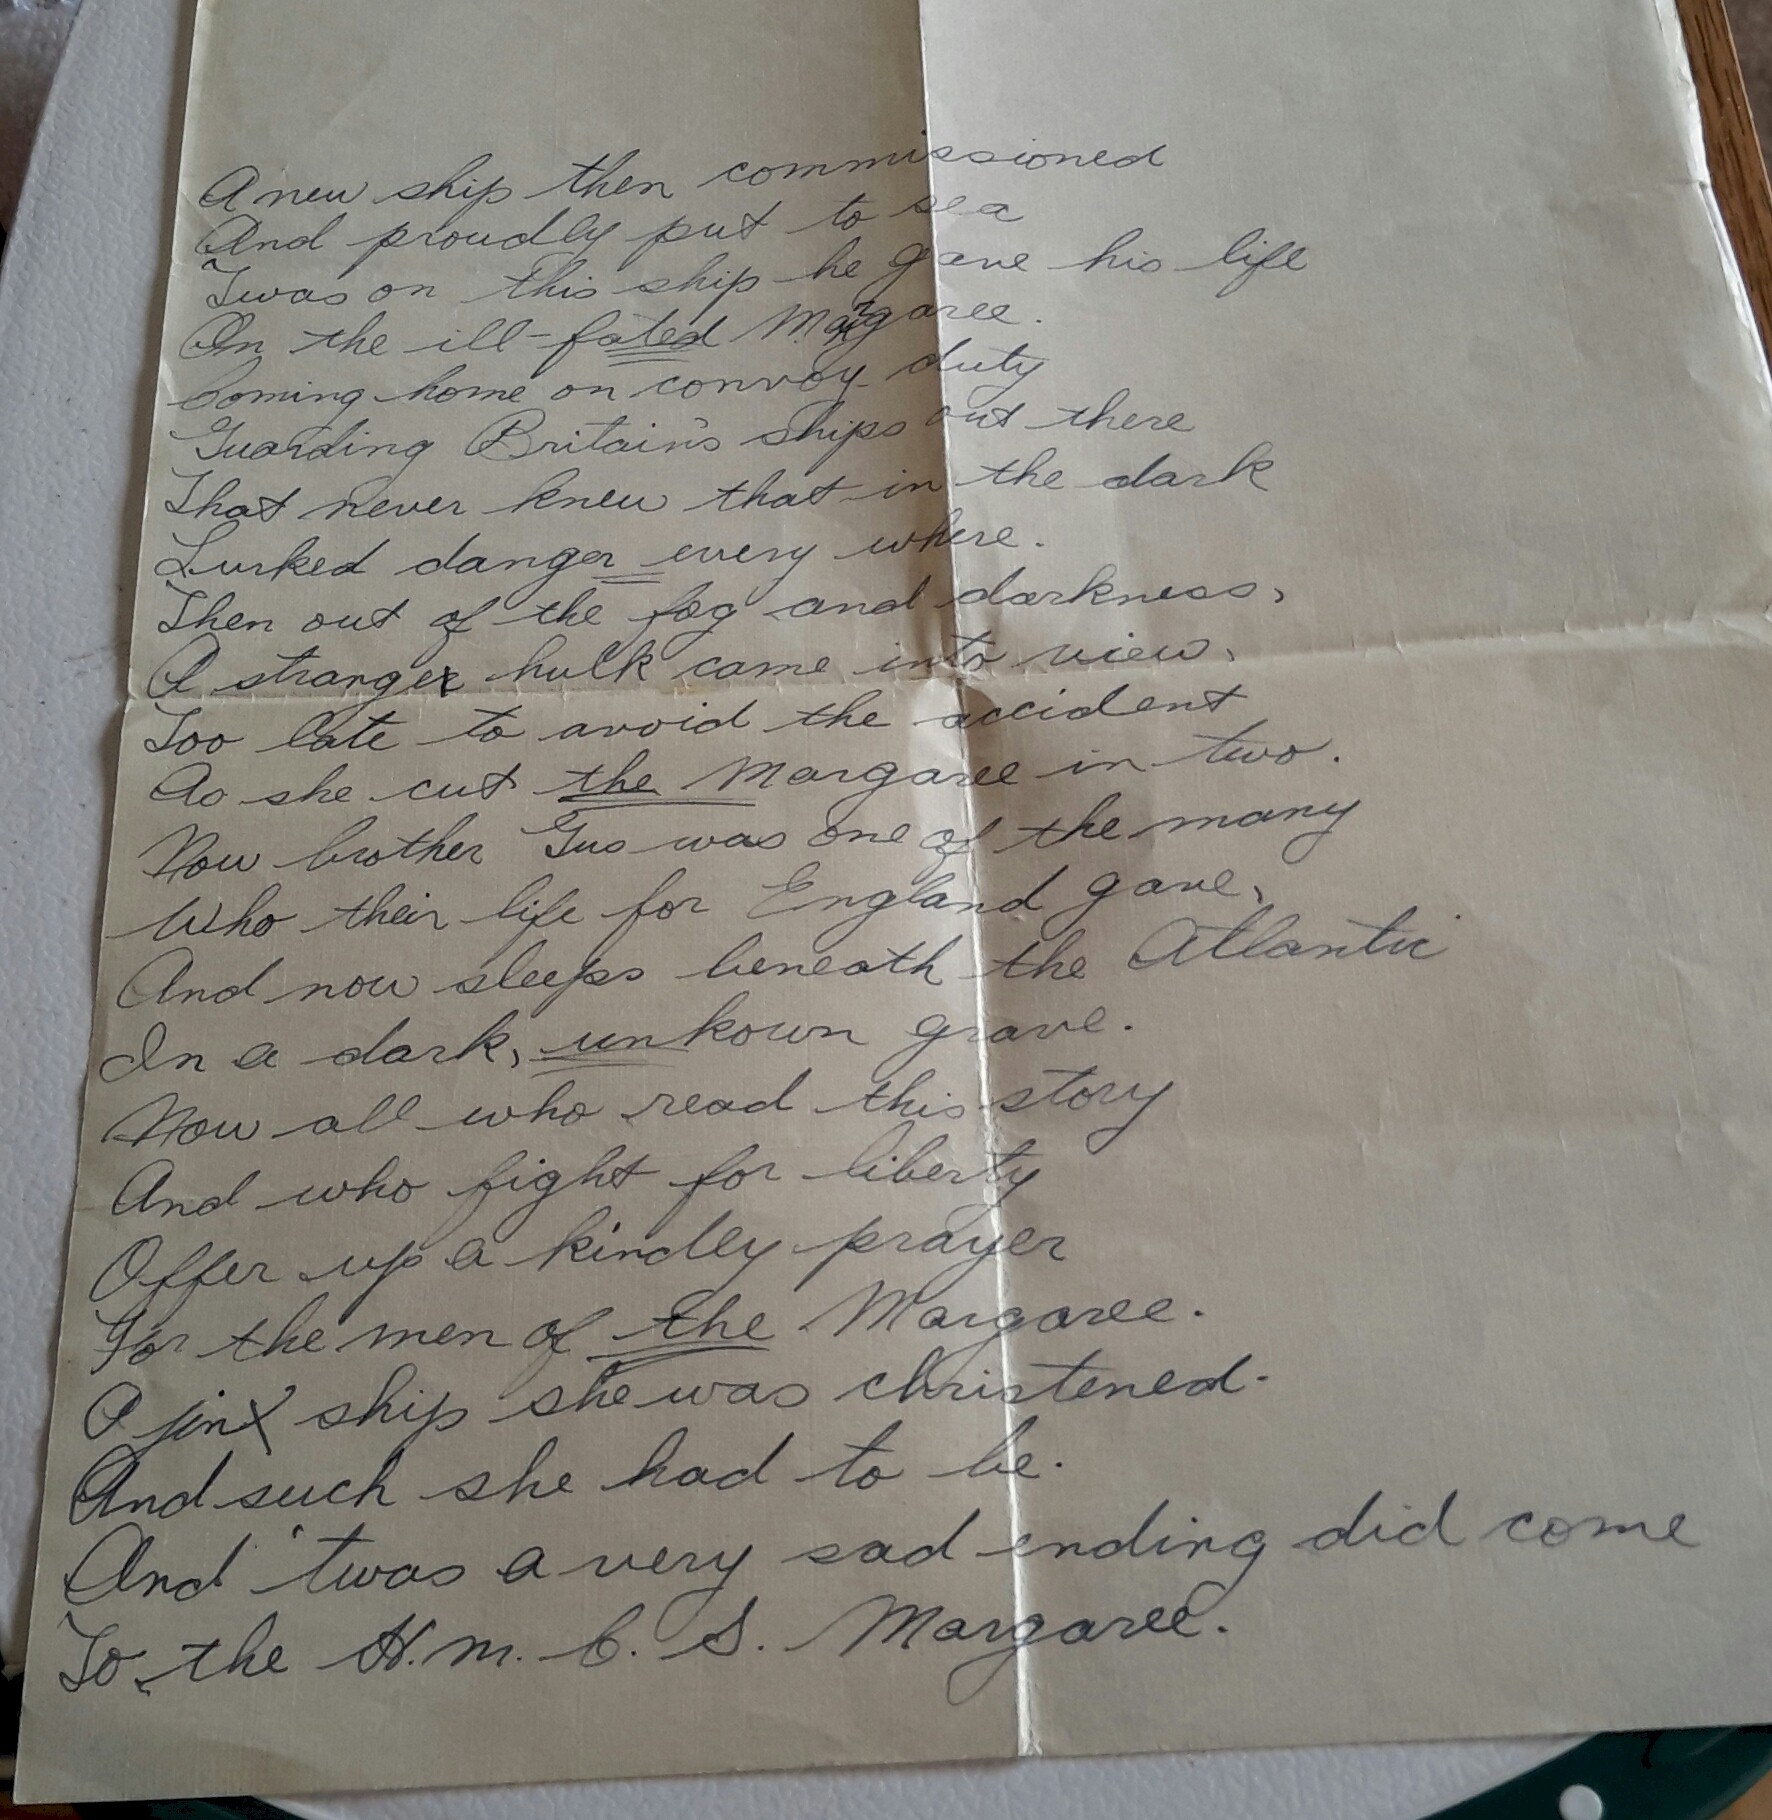 A new ship then commissioned
And proudly put to sea
Twas on this ship he gave his life
On the ill-fated Margaree.
Coming home on convoy duty
Guarding Britain's ships out there
That never knew that in the dark
Lurked danger every where.
Then out of the fog and darkness,
A stranger hulk came into view,
Too late to avoid the accident
As she cut the Margaree in two.
Now brother Gus was one of the many
Who their life for England gave,
And now sleeps beneath the Atlantic
In a dark, unkown grave.
Now all who read this story
And who fight for liberty
Offer up a kindly prayer
For the men of the Margaree.
A jinx ship she was christened.
And such she had to be.
And 'twas a very sad ending did come
To the H.M.C.S. Margaree.